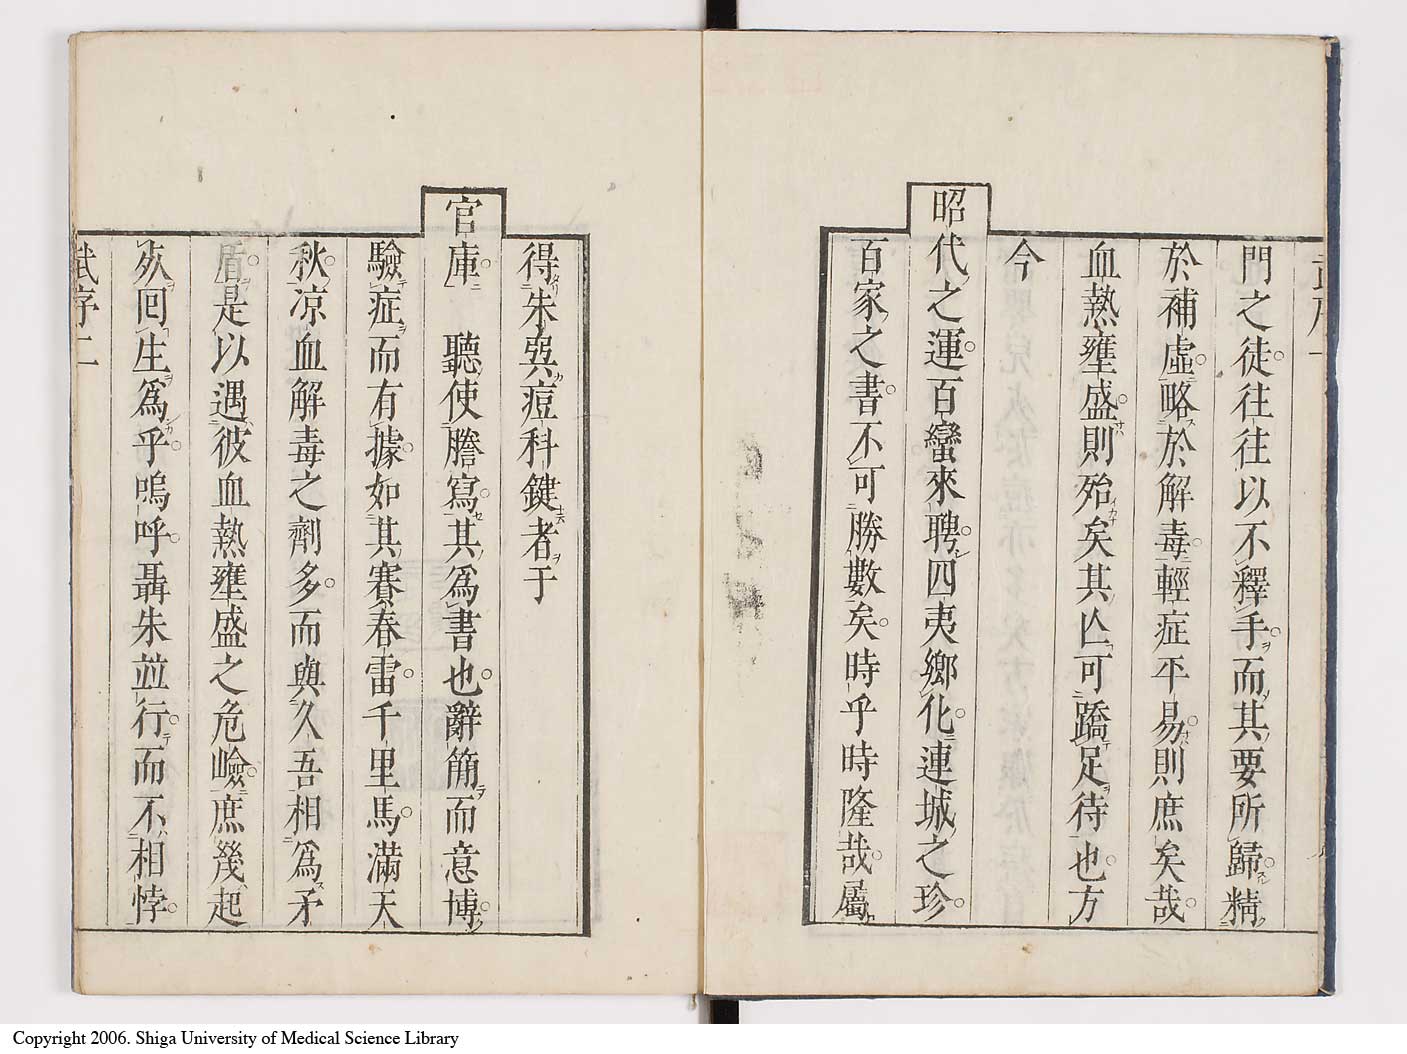 門之徒往往以不釋手而其要所歸精
於補虛略於解毒輕症平易則庶矣哉
血熱壅盛則殆矣其亾可蹻足待也方
今
昭代之運百蠻來聘四夷鄉化連城之珍
百家之書不可勝數矣時乎時隆哉屬
得朱㢲痘科鍵者于
官庫 聽使謄寫其爲書也辭簡而意博
驗症而有據如其賽春雷千里馬滿天
秋凉血解毒之劑多而與久吾相爲矛
盾是以遇彼血熱壅盛之危嶮庶幾起
夾回生爲乎嗚呼聶朱並行而不相悖
序二
Copyright 2006. Shiga University of Medical Science Library